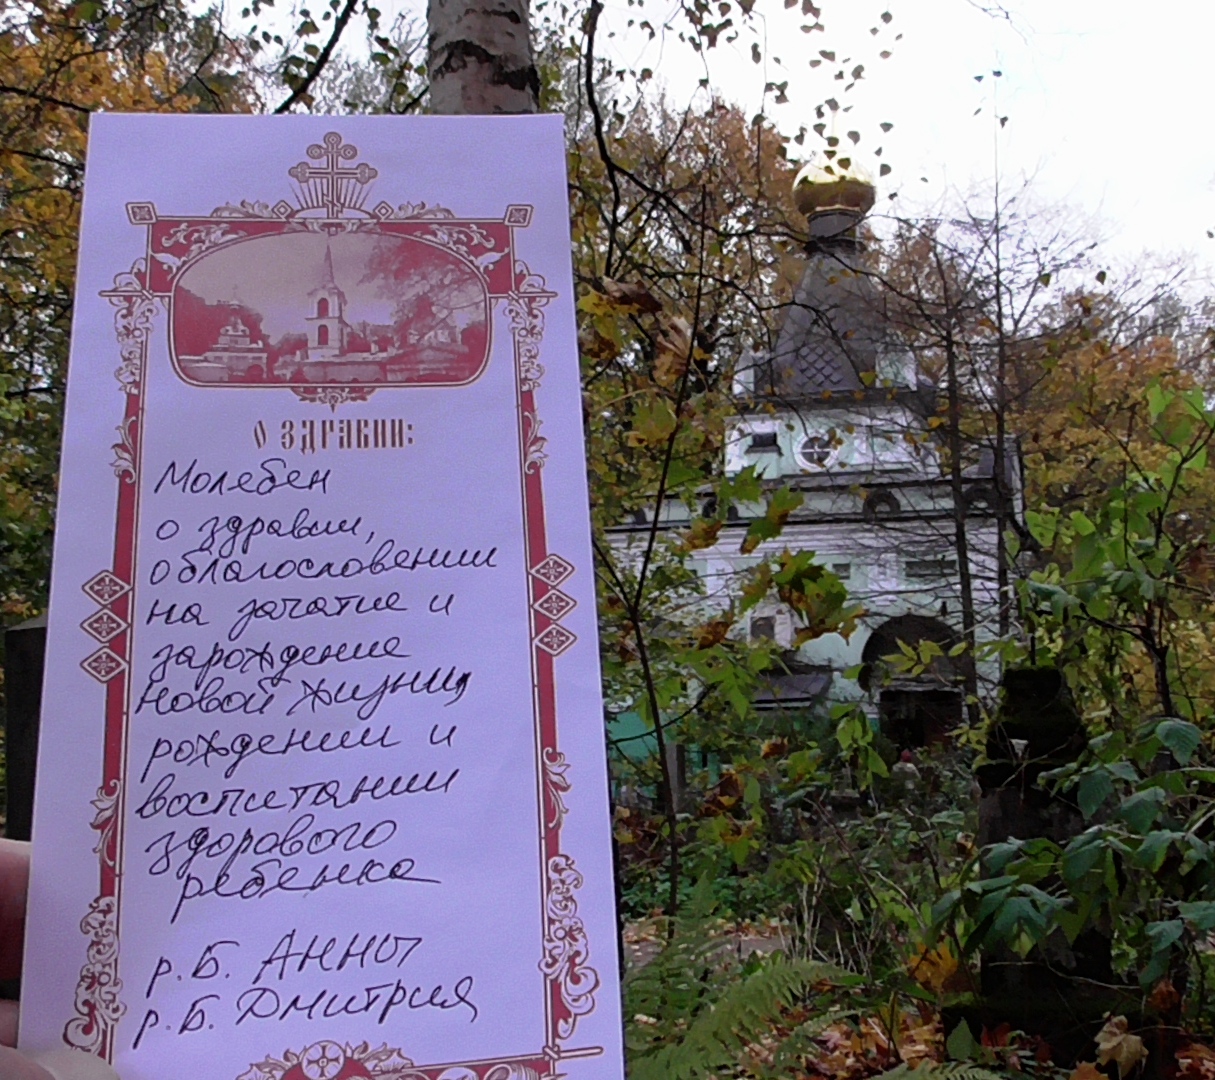 О ЗДРАВИИ:
Молебен
о здравии,
о благословении
на зачатие и
зарождение
новой жизни,
рождении и
воспитании
здорового
ребенка
р.Б. Анны
р.Б. Дмитрия